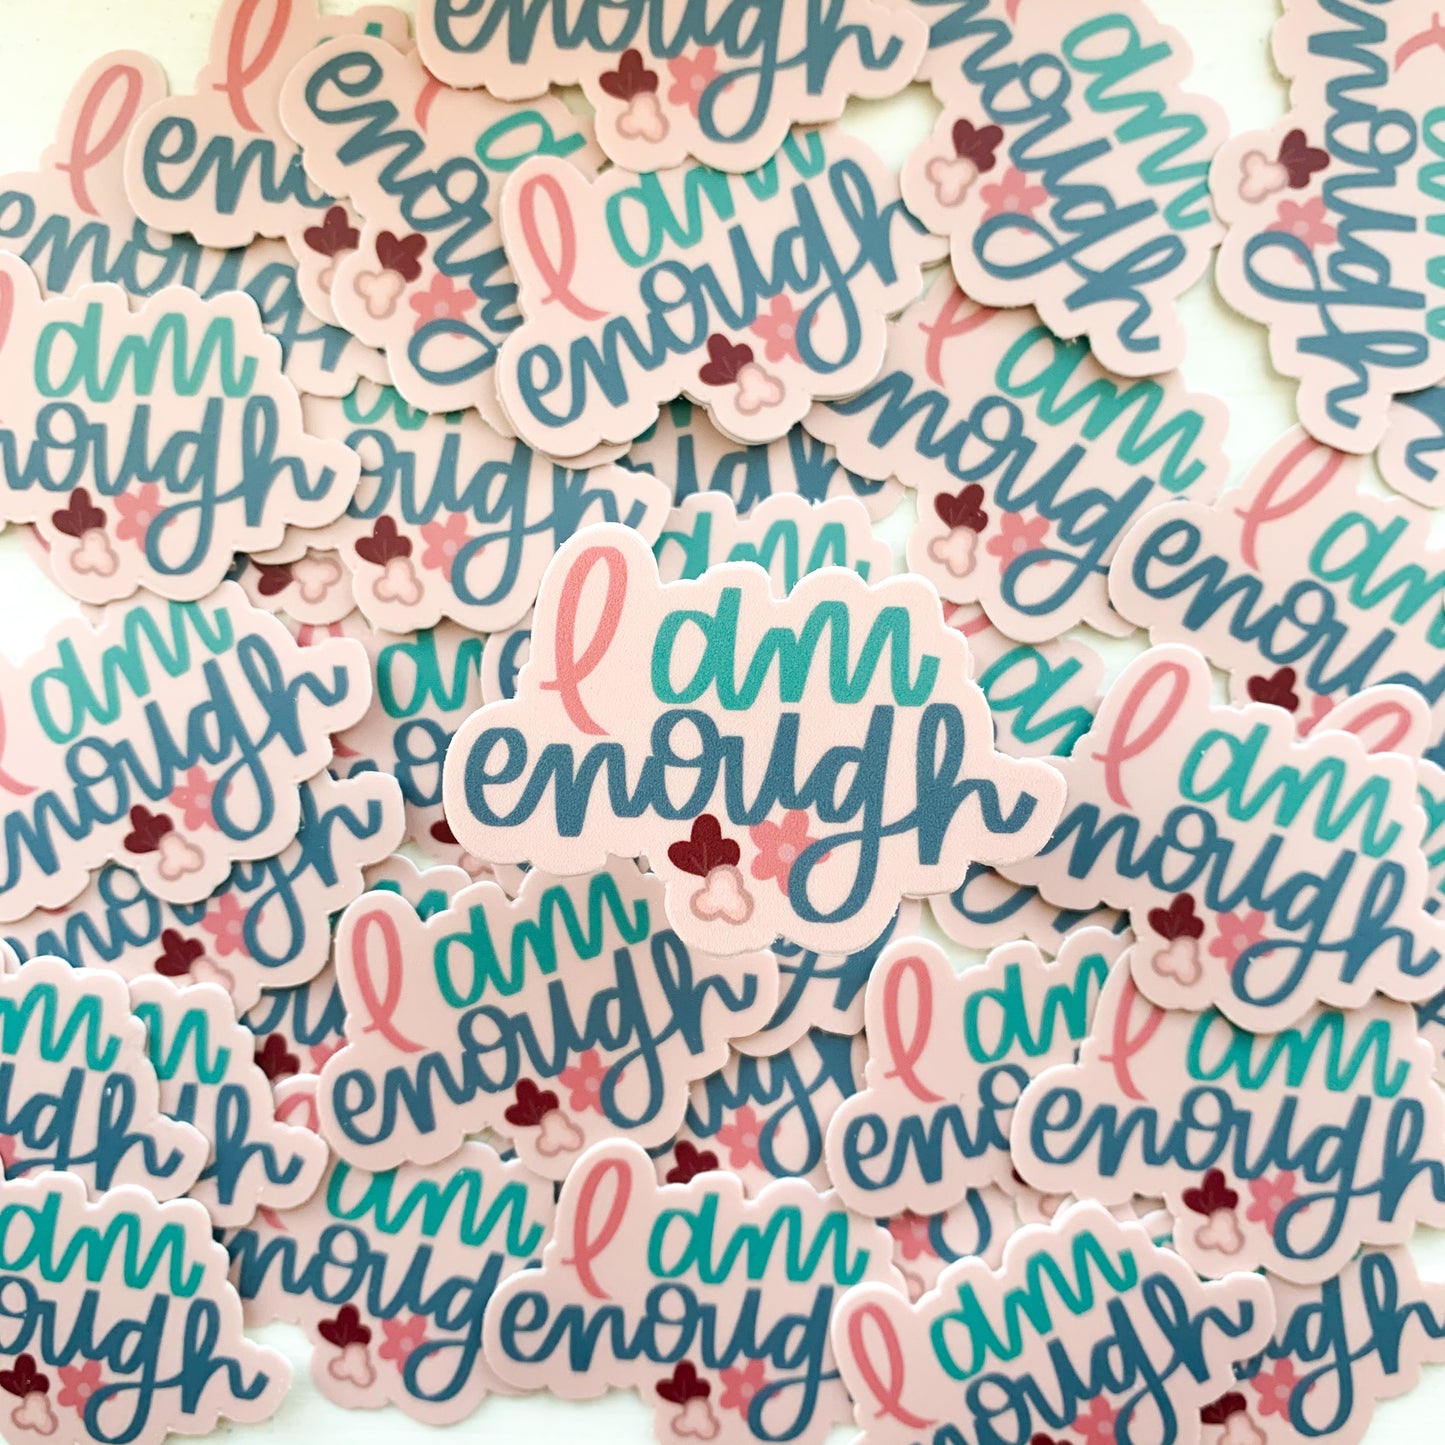 I am
enough